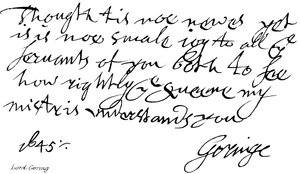 Though tis noe newes yet
is is noe smale ioy to all ye
servants of you both to see
how rightly ye queene my
mistris understands you
1645
Goringe
Lord Goring